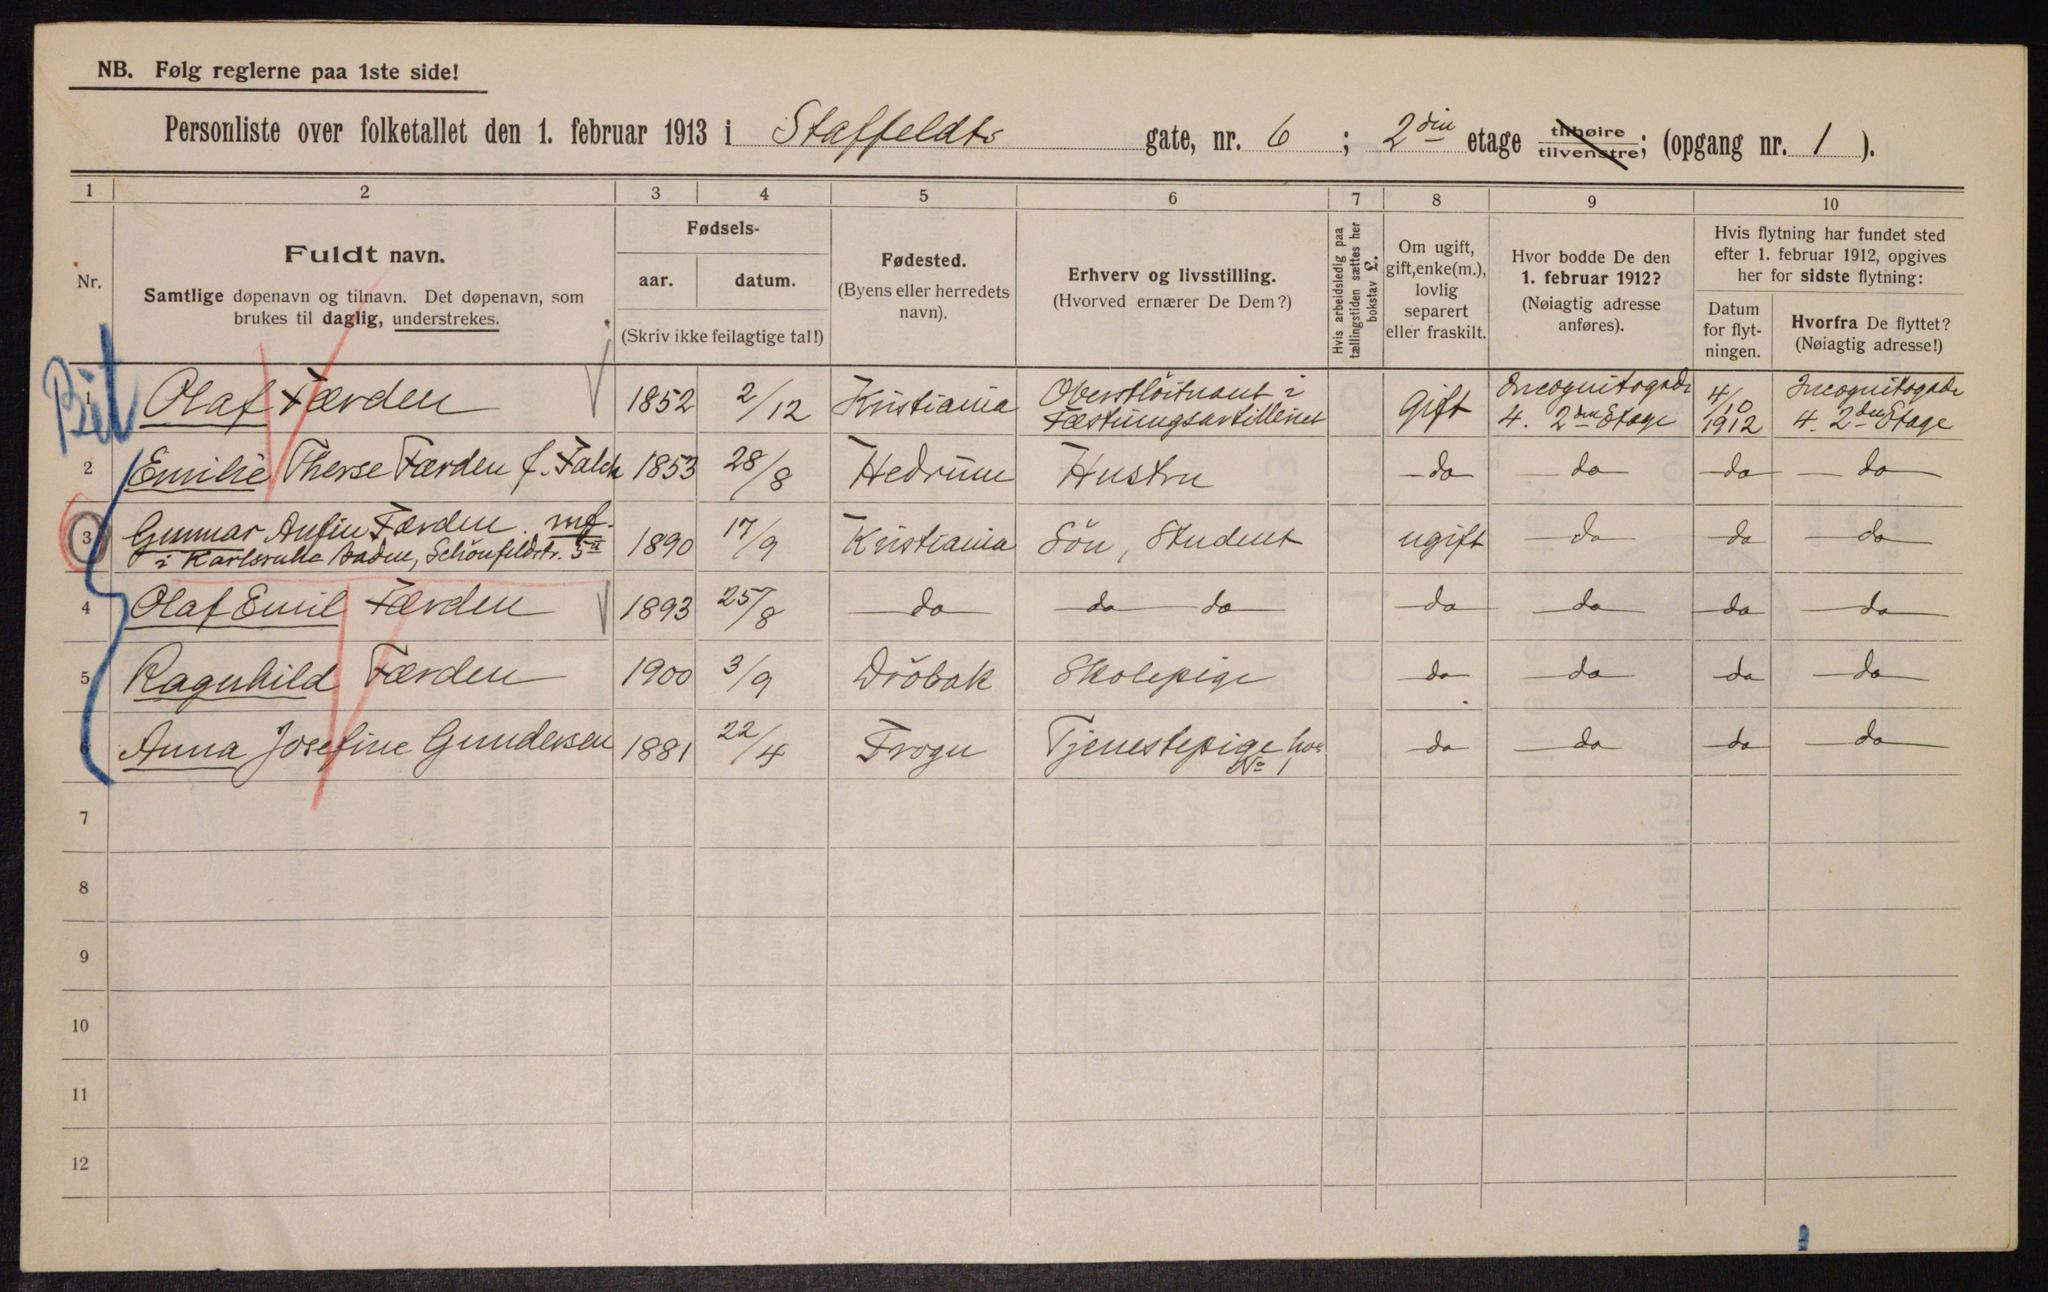 NB. Følg reglerne paa 1ste side!
Personliste over folketallet den 1. februar 1913 i Staffeldts gate, nr. 6 ; 2din etage tilhøire tilvenstre; (opgang nr. 1 ).
1 2 3 4 5 6 7 8 9 10
Nr.
Fuldt navn.
Samtlige døpenavn og tilnavn. Det døpenavn, som
brukes til daglig, understrekes.
Fødsels-
aar. datum.
(Skriv ikke feilagtige tal!)
Fødested.
(Byens eller herredets
navn).
Erhverv og livsstilling.
(Hvorved ernærer De Dem?)
Hvis arbeidsledig paa
tællingstiden sættes her
bokstav L.
Om ugift,
gift, enke(m.),
lovlig
separert
eller fraskilt.
Hvor bodde De den
1. februar 1912?
(Nøiagtig adresse
anføres).
Hvis flytning har fundet sted
efter 1. februar 1912, opgives
her for sidste flytning:
Datum
for flyt-
ningen.
Hvorfra De flyttet?
(Nøiagtig adresse!)
1 Olaf Færden 1852 2/12 Kristiania Oberstlöitnant i Fæstningsartilleriet Gift Incognitogade 4. 2den Etage 4/10 1912 Incognitogade 4. 2den Etage
2 Emilie Therse Færden f. Falck 1853 28/8 Hedrum Hustru da da da da
3 Gunnar Anfin Færden mf.
i Karlsruhe Baden, Schönfeldstr. 5II 1890 17/9 Kristiania Sön, Student ugift da da da
4 Olaf Emil Færden 1893 25/8 da da da da da da da
5 Ragnhild Færden 1900 3/9 Dröbak Skolepige da da da da
6 Anna Josefine Gundersen 1881 22/4 Frogn Tjenestepige hos No 1 da da da da
7
8
9
10
11
12